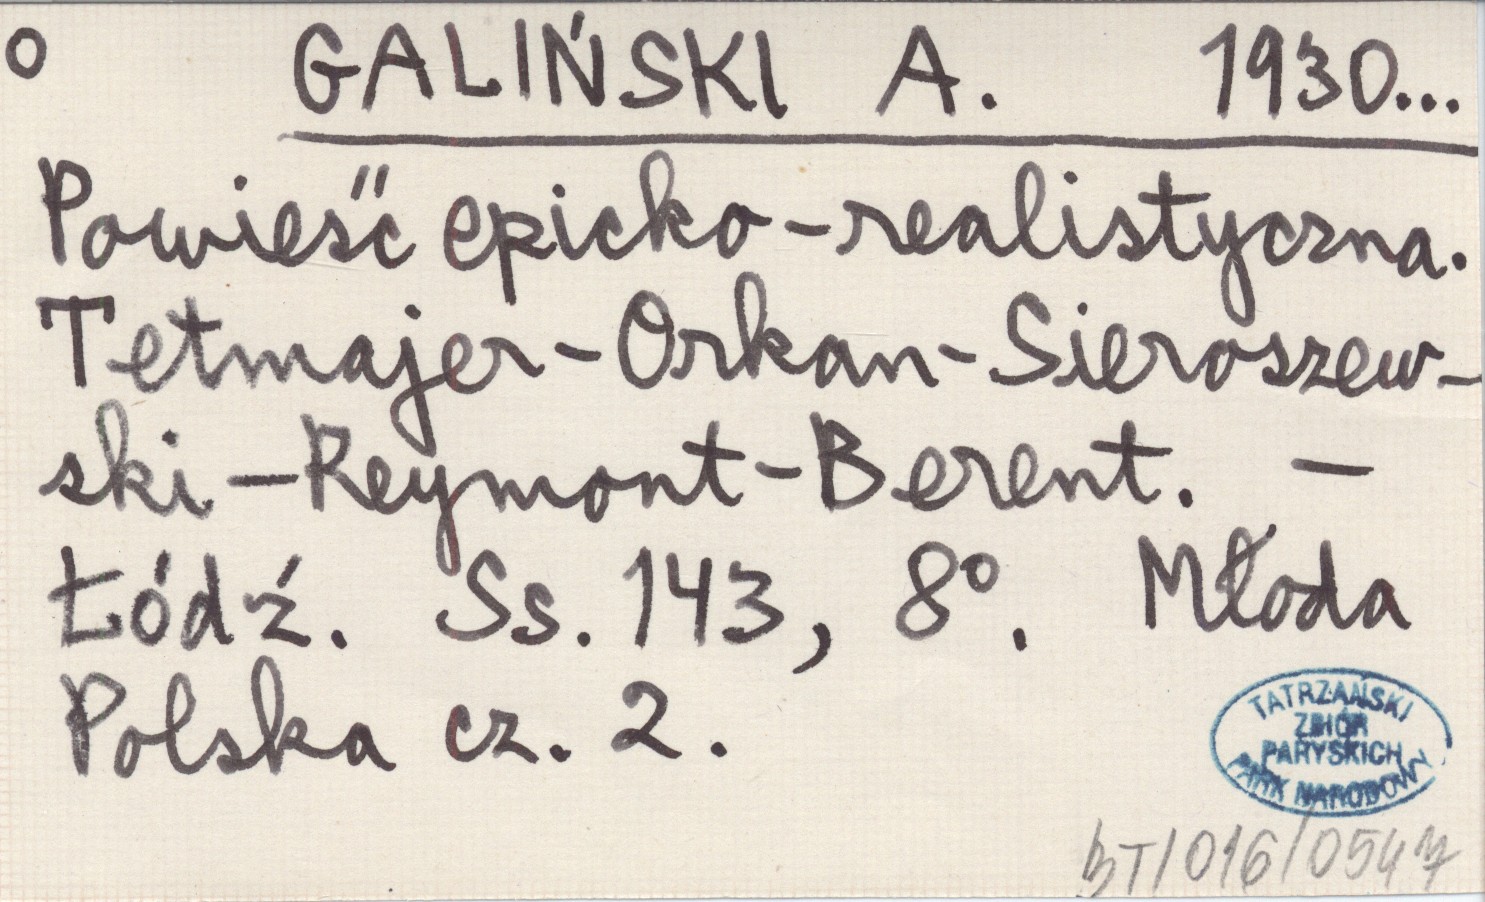 o GALIŃSKI A. 1930...
Powieść epicko-realistyczna.
Tetmajer-Orkan-Sieroszew-
ski-Reymont-Berent. -
Łódź. Ss. 143, 8°. Młoda
Polska cz. 2.
TATRZAŃSKI
ZBIÓR
PARYSKICH
PARK NARODOWY
BT/016/0547